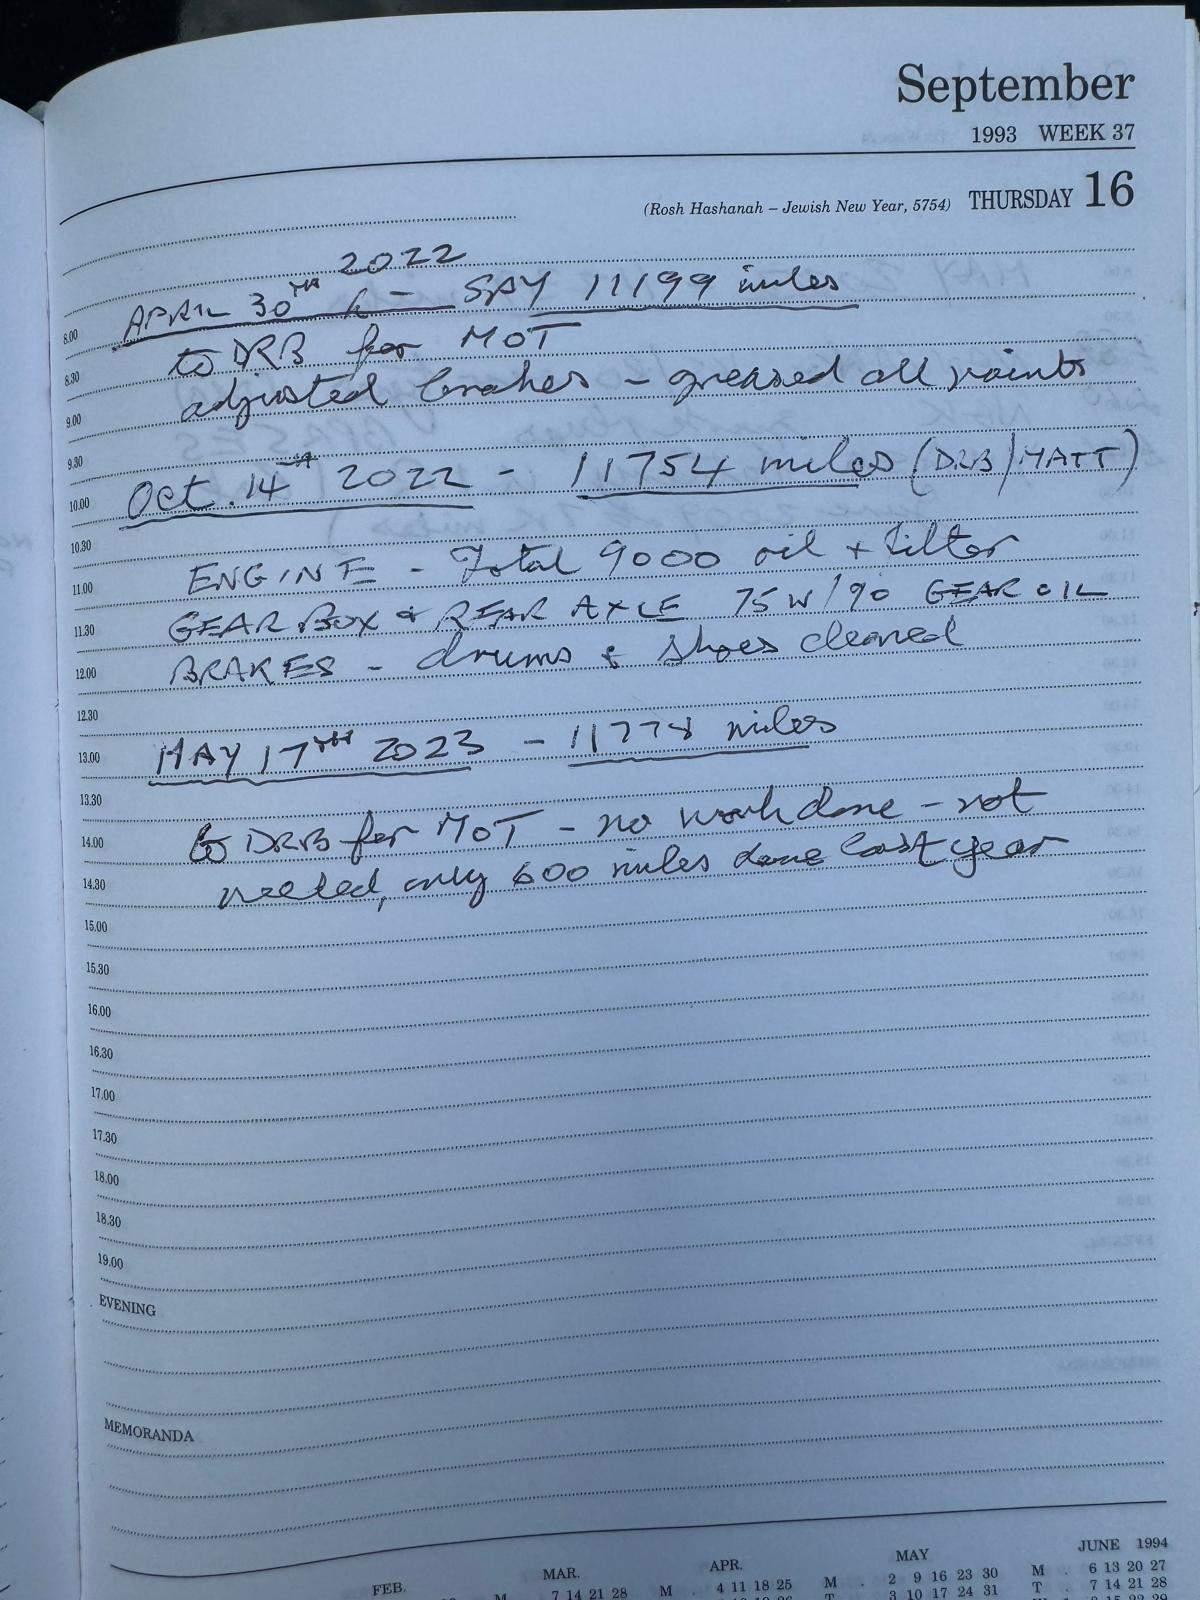 September
1993 WEEK 37
(Rosh Hashanah – Jewish New Year, 5754) THURSDAY 16
2022
APRIL 30TH – SAY 11199 miles
8.00
to DRB for MOT
8.30
adjusted brakes – greased all points
9.00
9.30
Oct. 14th 2022 – 11754 miles (DRB/MATT)
10.00
10.30
ENGINE – Total 9000 oil + filter
11.00
GEARBOX & REAR AXLE 75W/90 GEAR OIL
11.30
BRAKES – drums & shoes cleaned
12.00
12.30
MAY 17TH 2023 – 11778 miles
13.00
13.30
to DRB for MOT – no work done – not
14.00
needed, only 600 miles done last year
14.30
15.00
15.30
16.00
16.30
17.00
17.30
18.00
18.30
19.00
EVENING
MEMORANDA
FEB. MAR. APR. MAY JUNE 1994
M 7 14 21 28 M . 4 11 18 25 M . 2 9 16 23 30 M . 6 13 20 27
T 3 10 17 24 31 T . 7 14 21 28